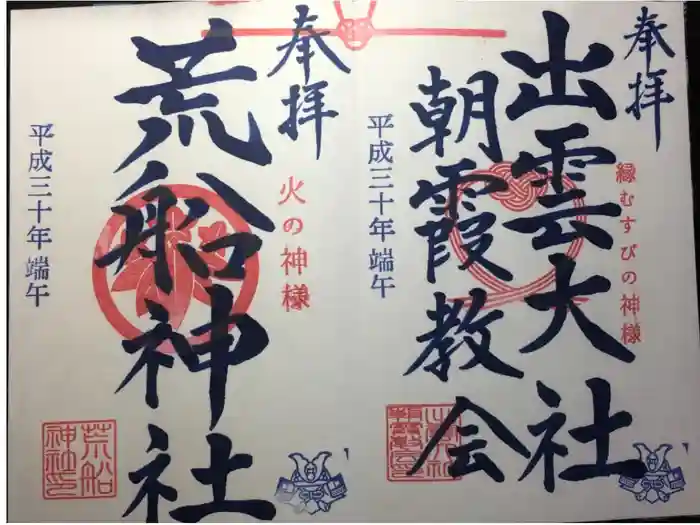 奉拝
縁むすびの神様
出雲大社
朝霞教会
平成三十年 端午
奉拝
火の神様
荒船神社
平成三十年 端午
荒船
神社印